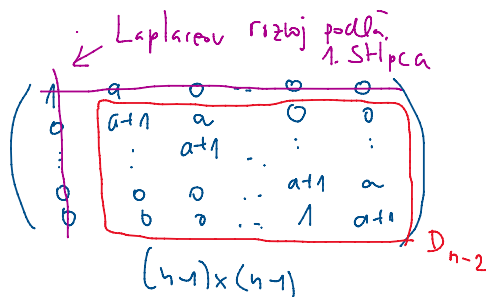 Laplaceov rozvoj podľa
1. stĺpca
1 a 0 .. 0 0
0 a+1 a 0 0
: : a+1 .. : :
0 0 0 .. a+1 a
0 0 0 .. 1 a+1
D n-2
(n-1)x(n-1)